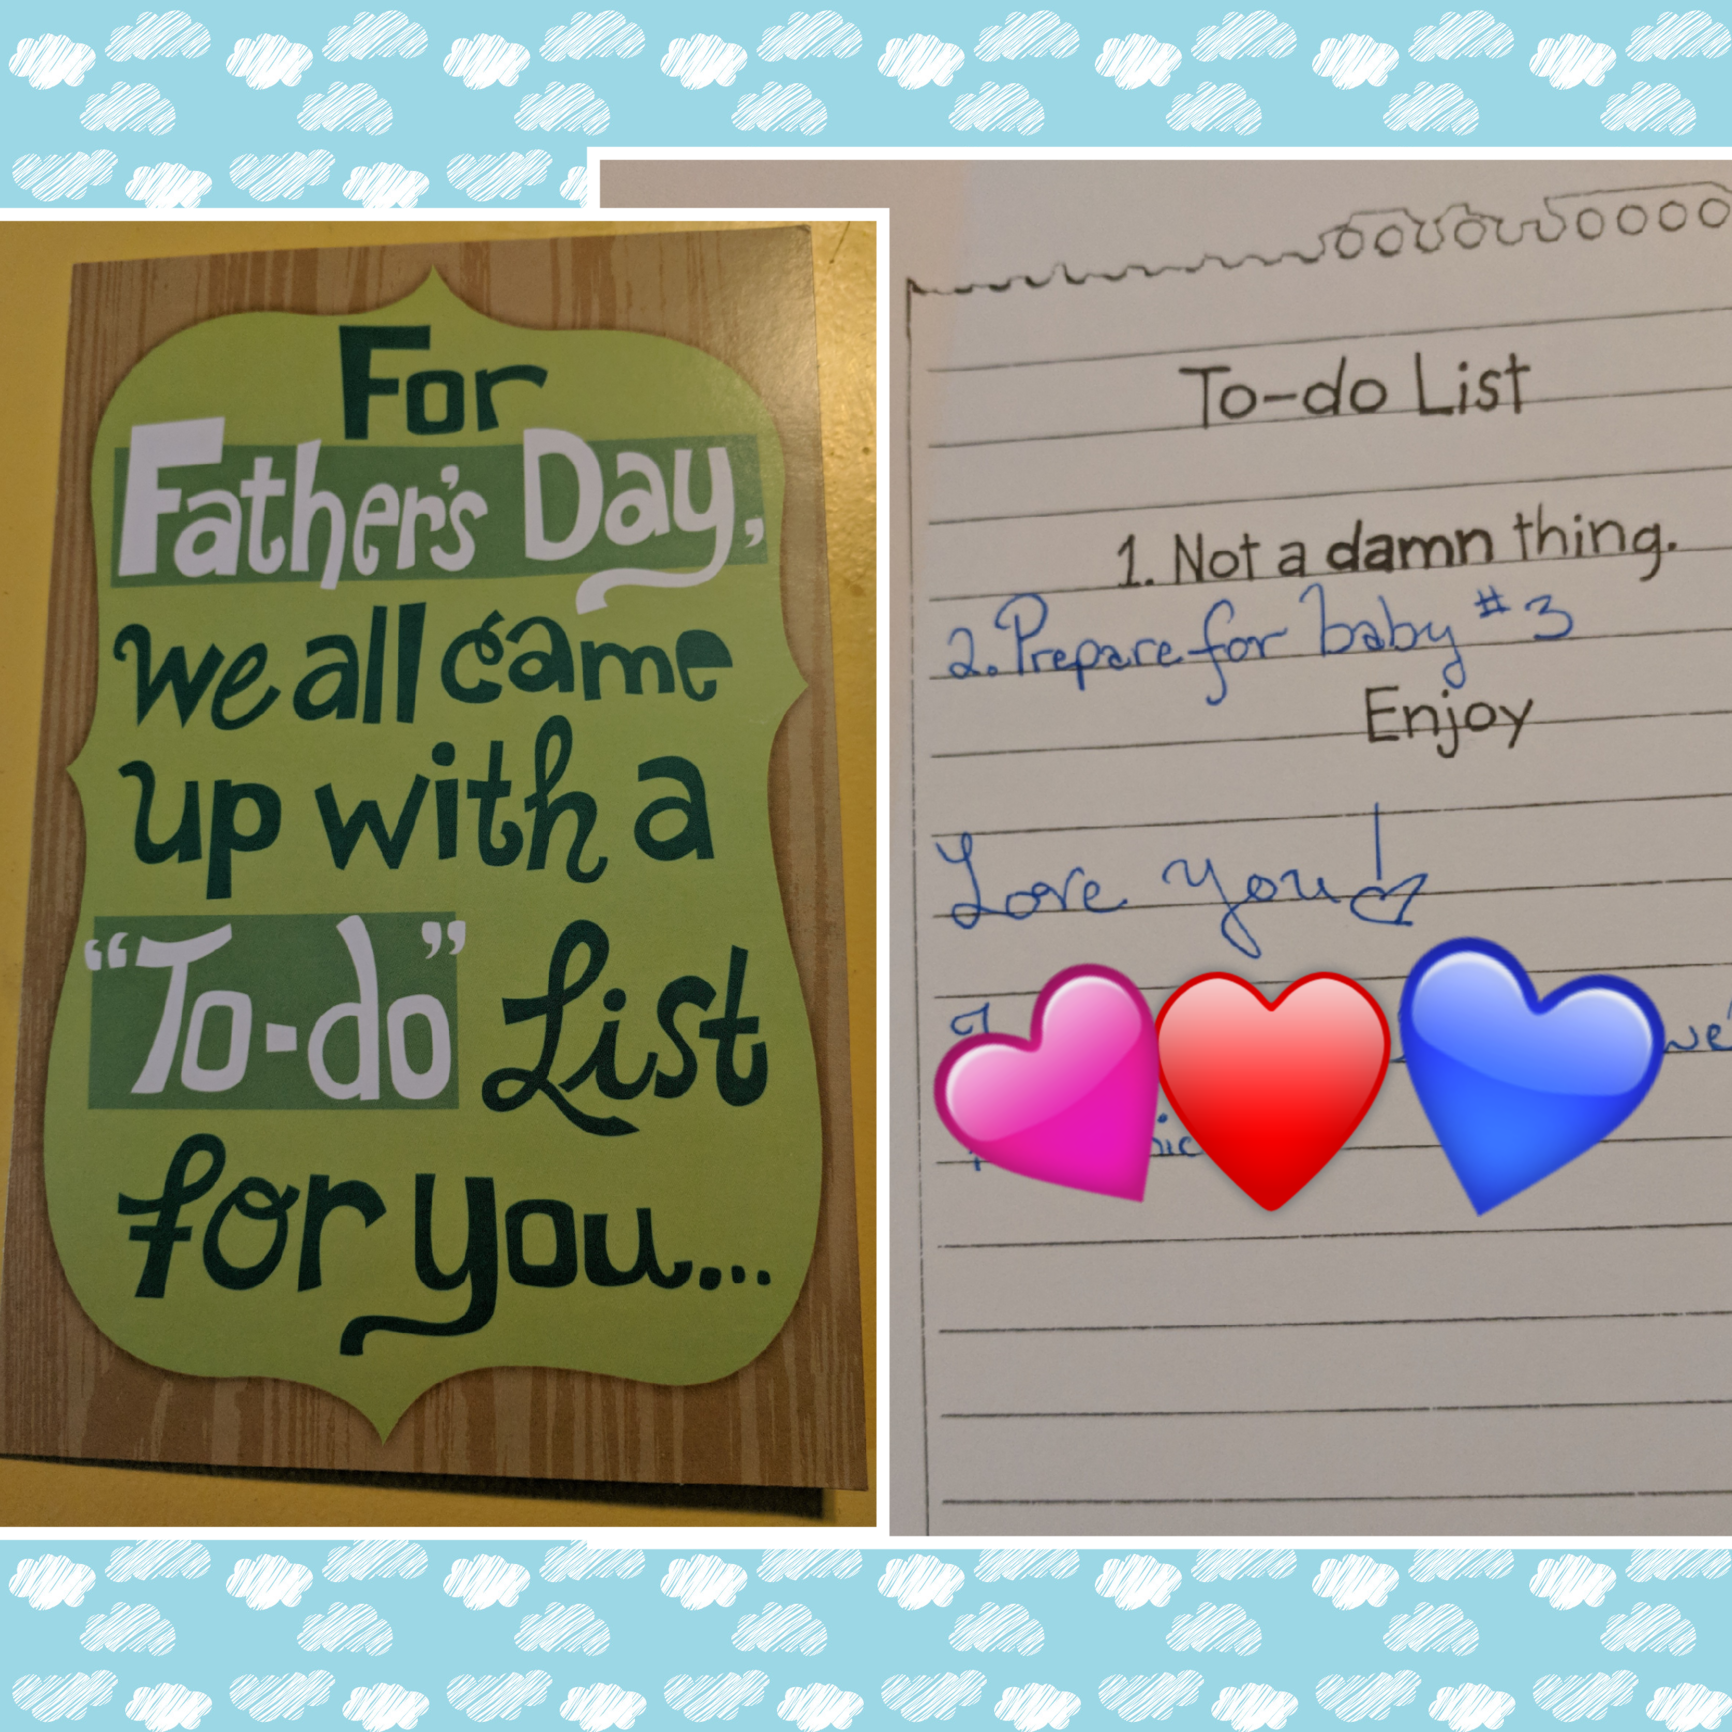 For
Father's Day,
we all came
up with a
"To-do" List
for you...
To-do List
1. Not a damn thing.
2. Prepare for baby #3
Enjoy
Love you!